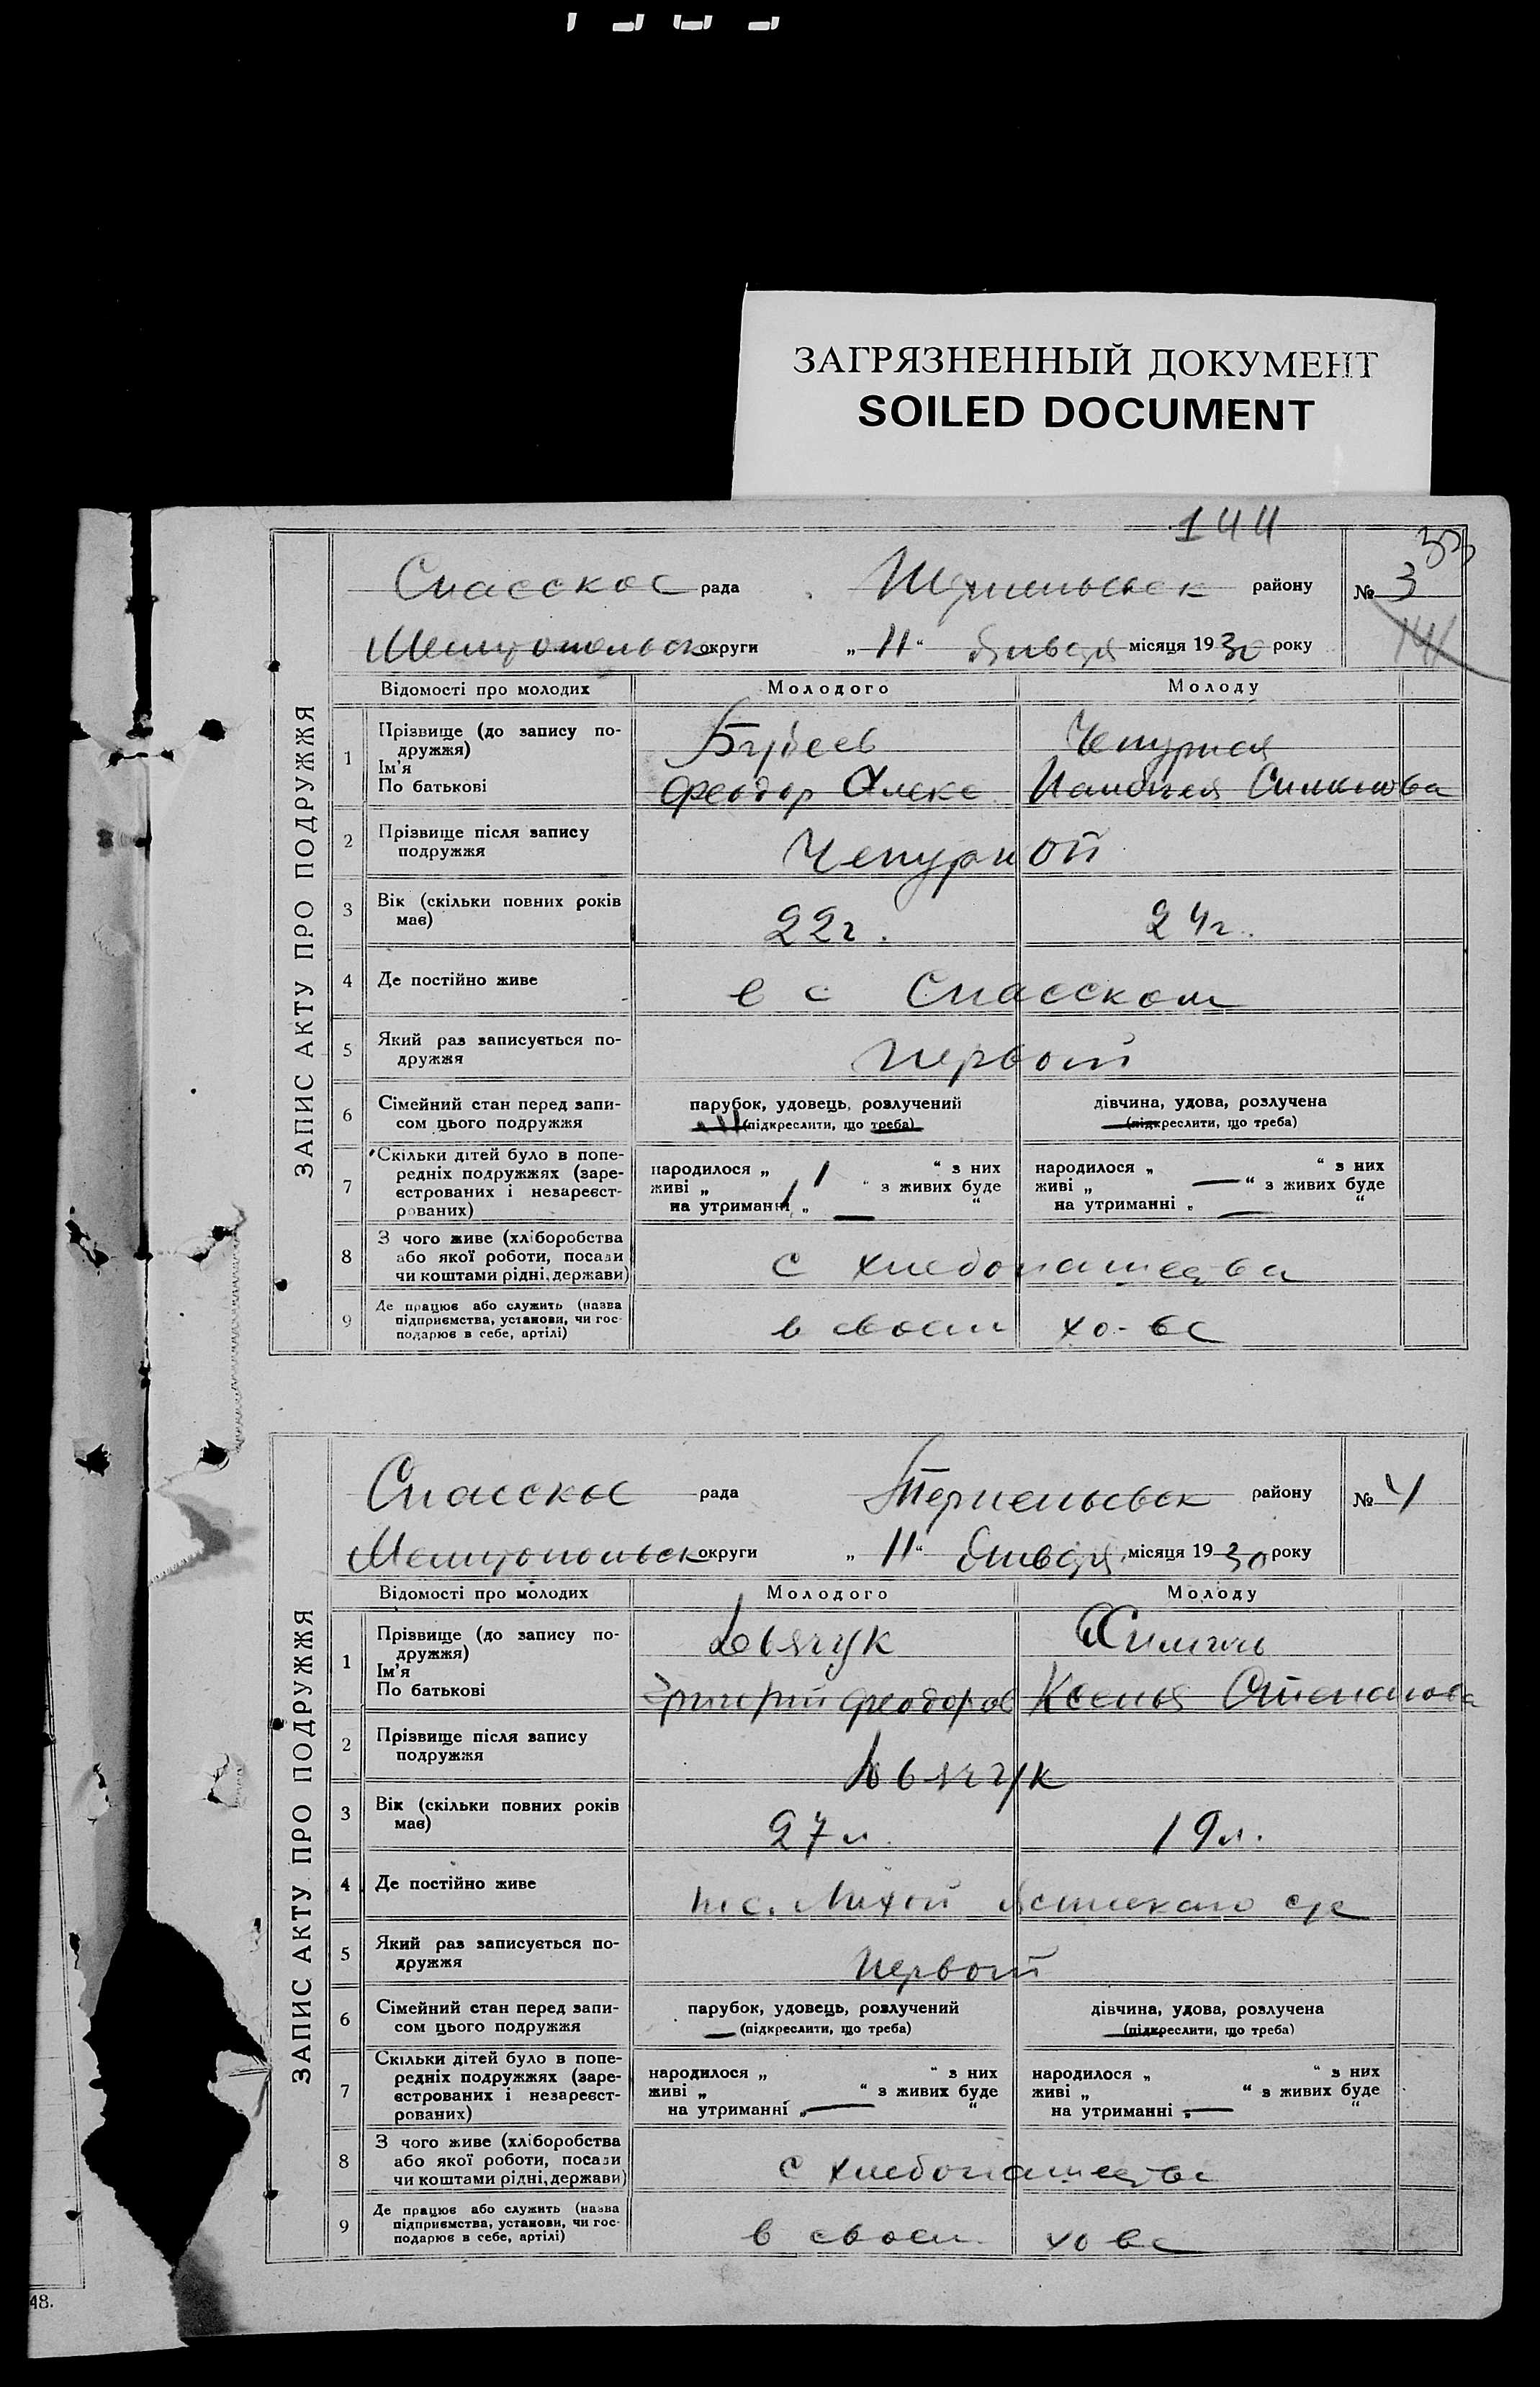 ЗАГРЯЗНЕННЫЙ ДОКУМЕНТ
SOILED DOCUMENT
144
ЗАПИС АКТУ ПРО ПОДРУЖЖЯ
Спасское рада району № 3
округи „11“ Января місяця 1930 року
Відомості про молодих Молодого Молоду
1 Прізвище (до запису по-
дружжя)
Ім'я
По батькові
Чепурная
Феодор Алекс.
2 Прізвище після запису
подружжя
Чепурной
3 Вік (скільки повних років
має)
22г. 24г.
4 Де постійно живе
в с Спасском
5 Який раз записується по-
дружжя
первый
6 Сімейний стан перед запи-
сом цього подружжя
парубок, удовець, розлучений
(підкреслити, що треба)
дівчина, удова, розлучена
(підкреслити, що треба)
7 Скільки дітей було в попе-
редніх подружжях (заре-
єстрованих і незареєст-
рованих)
народилося „ 1 “ з них
живі „ “ з живих буде
на утриманні „ — “
народилося „ “ з них
живі „ — “ з живих буде
на утриманні „ — “
8 З чого живе (хліборобства
або якої роботи, посади
чи коштами рідні, держави)
с хлебопашества
9 Де працює або служить (назва
підприємства, установи, чи гос-
подарює в себе, артілі)
в своем хо-ве
ЗАПИС АКТУ ПРО ПОДРУЖЖЯ
Спасское рада району № 4
округи „11“ Января місяця 1930 року
Відомості про молодих Молодого Молоду
1 Прізвище (до запису по-
дружжя)
Ім'я
По батькові
Григорий Феодоров Ксенья Степанова
2 Прізвище після запису
подружжя
3 Вік (скільки повних років
має)
27л. 19л.
4 Де постійно живе
5 Який раз записується по-
дружжя
первый
6 Сімейний стан перед запи-
сом цього подружжя
парубок, удовець, розлучений
(підкреслити, що треба)
дівчина, удова, розлучена
(підкреслити, що треба)
7 Скільки дітей було в попе-
редніх подружжях (заре-
єстрованих і незареєст-
рованих)
народилося „ “ з них
живі „ “ з живих буде
на утриманні „ — “
народилося „ “ з них
живі „ “ з живих буде
на утриманні „ — “
8 З чого живе (хліборобства
або якої роботи, посади
чи коштами рідні, держави)
с хлебопашества
9 Де працює або служить (назва
підприємства, установи, чи гос-
подарює в себе, артілі)
в своем хо ве
48.